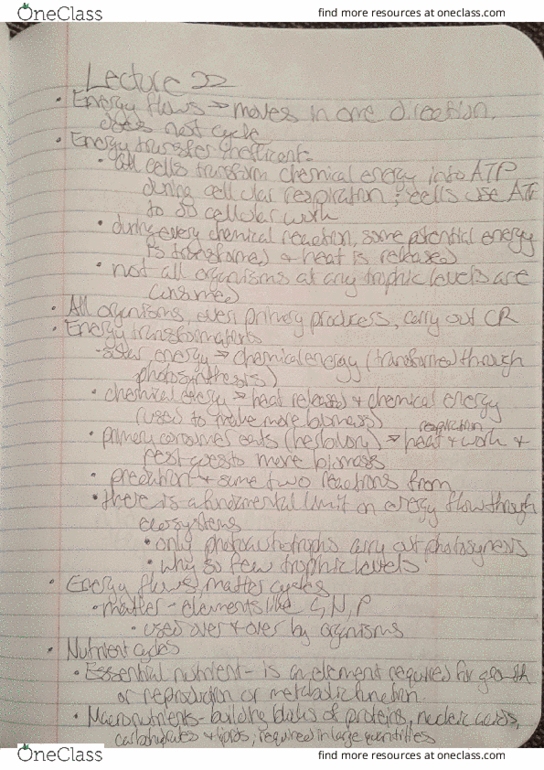 OneClass
find more resources at oneclass.com
Lecture 22
• Energy flows → moves in one direction,
does not cycle
• Energy transfer inefficient
• all cells transform chemical energy into ATP
during cellular respiration; cells use ATP
to do cellular work
• during every chemical reaction, some potential energy
is transformed & heat is released
• not all organisms at any trophic levels are
consumed
• All organisms, even primary producers, carry out CR
• Energy transformations
- solar energy → chemical energy (transformed through
photosynthesis)
• chemical energy → heat released & chemical energy
(used to make more biomass)
respiration
• primary consumer eats (herbivory) → heat & work &
rest goes to more biomass
• predation & same two reactions from
• there is a fundamental limit on energy flow through
ecosystems
• only photoautotrophs carry out
• why so few trophic levels
• Energy flows, matter cycles
• matter - elements like C, N, P
• used over & over by organisms
• Nutrient cycles
• Essential nutrient - is an element required for growth
or reproduction or metabolic function
• Macronutrients - building blocks of proteins, nucleic acids,
carbohydrates & lipids, required in large quantities
OneClass
find more resources at oneclass.com